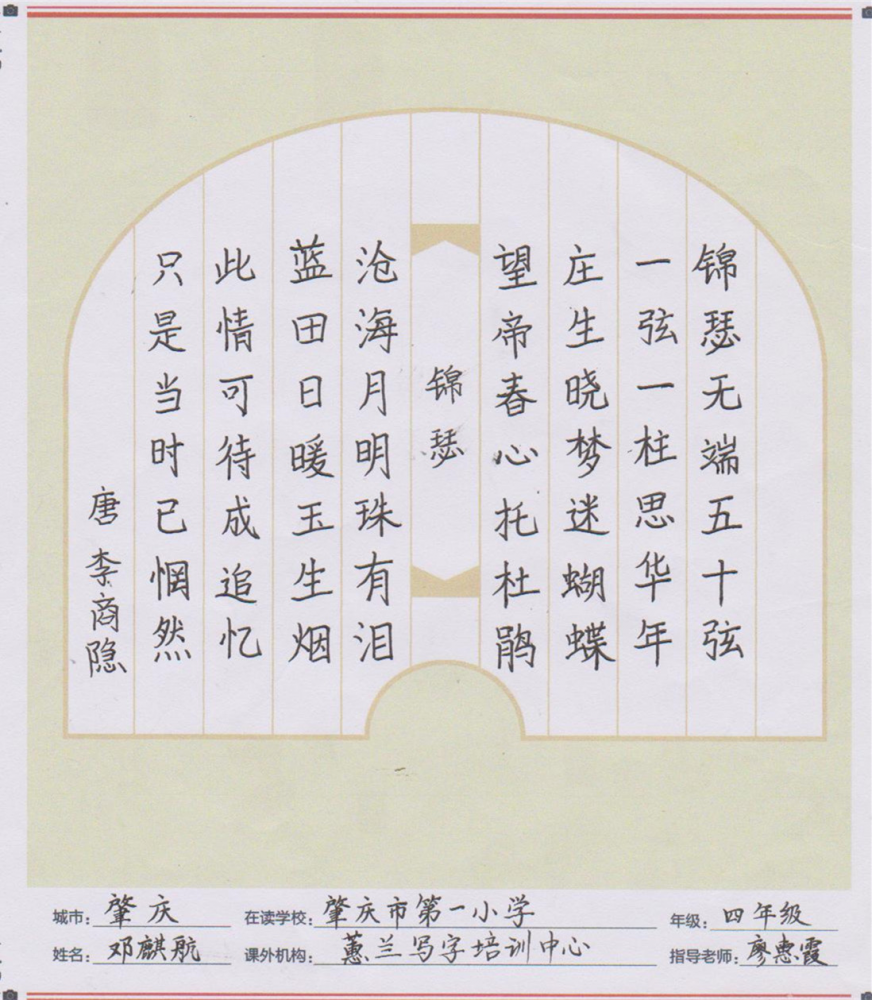 锦瑟无端五十弦
一弦一柱思华年
庄生晓梦迷蝴蝶
望帝春心托杜鹃
锦瑟
沧海月明珠有泪
蓝田日暖玉生烟
此情可待成追忆
只是当时已惘然
唐 李商隐
城市: 肇庆 在读学校: 肇庆市第一小学 年级: 四年级
姓名: 邓麒航 课外机构: 蕙兰写字培训中心 指导老师: 廖惠霞